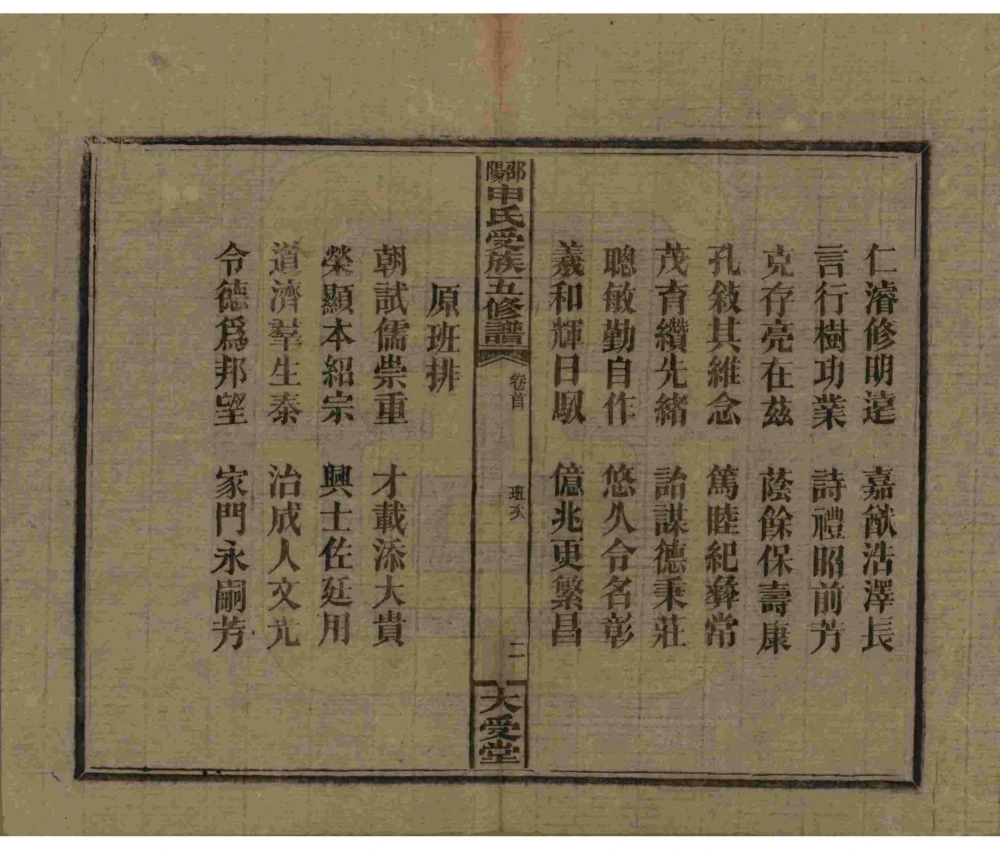 仁濬修明遠 嘉猷浩澤長
言行樹功業 詩禮昭前芳
克存亮在茲 蔭餘保壽康
孔敘其維念 篤睦紀彝常
茂育纘先緒 詒謀德秉莊
聰敏勤自作 悠久令名彰
羲和輝日馭 億兆更繁昌
邵陽申氏受族五修譜 卷首 班次 二 大受堂
原班排
朝試儒崇重 才載添大貴
榮顯本紹宗 興士佐廷用
道濟羣生泰 治成人文光
令德爲邦望 家門永嗣芳